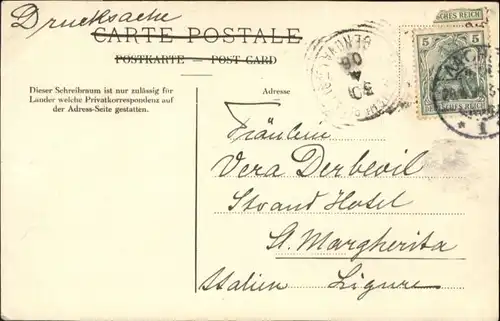 Drucksache
CARTE POSTALE
POSTKARTE — POST CARD
Dieser Schreibraum ist nur zulässig für
Länder welche Privatkorrespondenz auf
der Adress-Seite gestatten.
Adresse
Fräulein
Vera Derbevil
Strand Hotel
St. Margherita
Italien Ligure
5 5
DEUTSCHES REICH